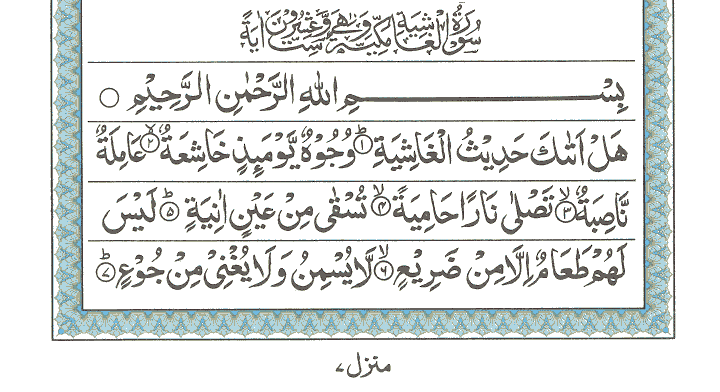 سُوْرَةُ الْغَاشِيَةِ مَكِّيَّةٌ وَّهِيَ سِتٌّ وَّعِشْرُوْنَ اٰيَةً
بِسْمِ اللّٰهِ الرَّحْمٰنِ الرَّحِيْمِ ○
هَلْ اَتٰىكَ حَدِيْثُ الْغَاشِيَةِ ؕ﴿۱﴾ وُجُوْهٌ يَّوْمَىِٕذٍ خَاشِعَةٌ ۙ﴿۲﴾ عَامِلَةٌ
نَّاصِبَةٌ ۙ﴿۳﴾ تَصْلٰى نَارًا حَامِيَةً ۙ﴿۴﴾ تُسْقٰى مِنْ عَيْنٍ اٰنِيَةٍ ؕ﴿۵﴾ لَيْسَ
لَهُمْ طَعَامٌ اِلَّا مِنْ ضَرِيْعٍ ۙ﴿۶﴾ لَّا يُسْمِنُ وَلَا يُغْنِىْ مِنْ جُوْعٍ ؕ﴿۷﴾
منزل ۷